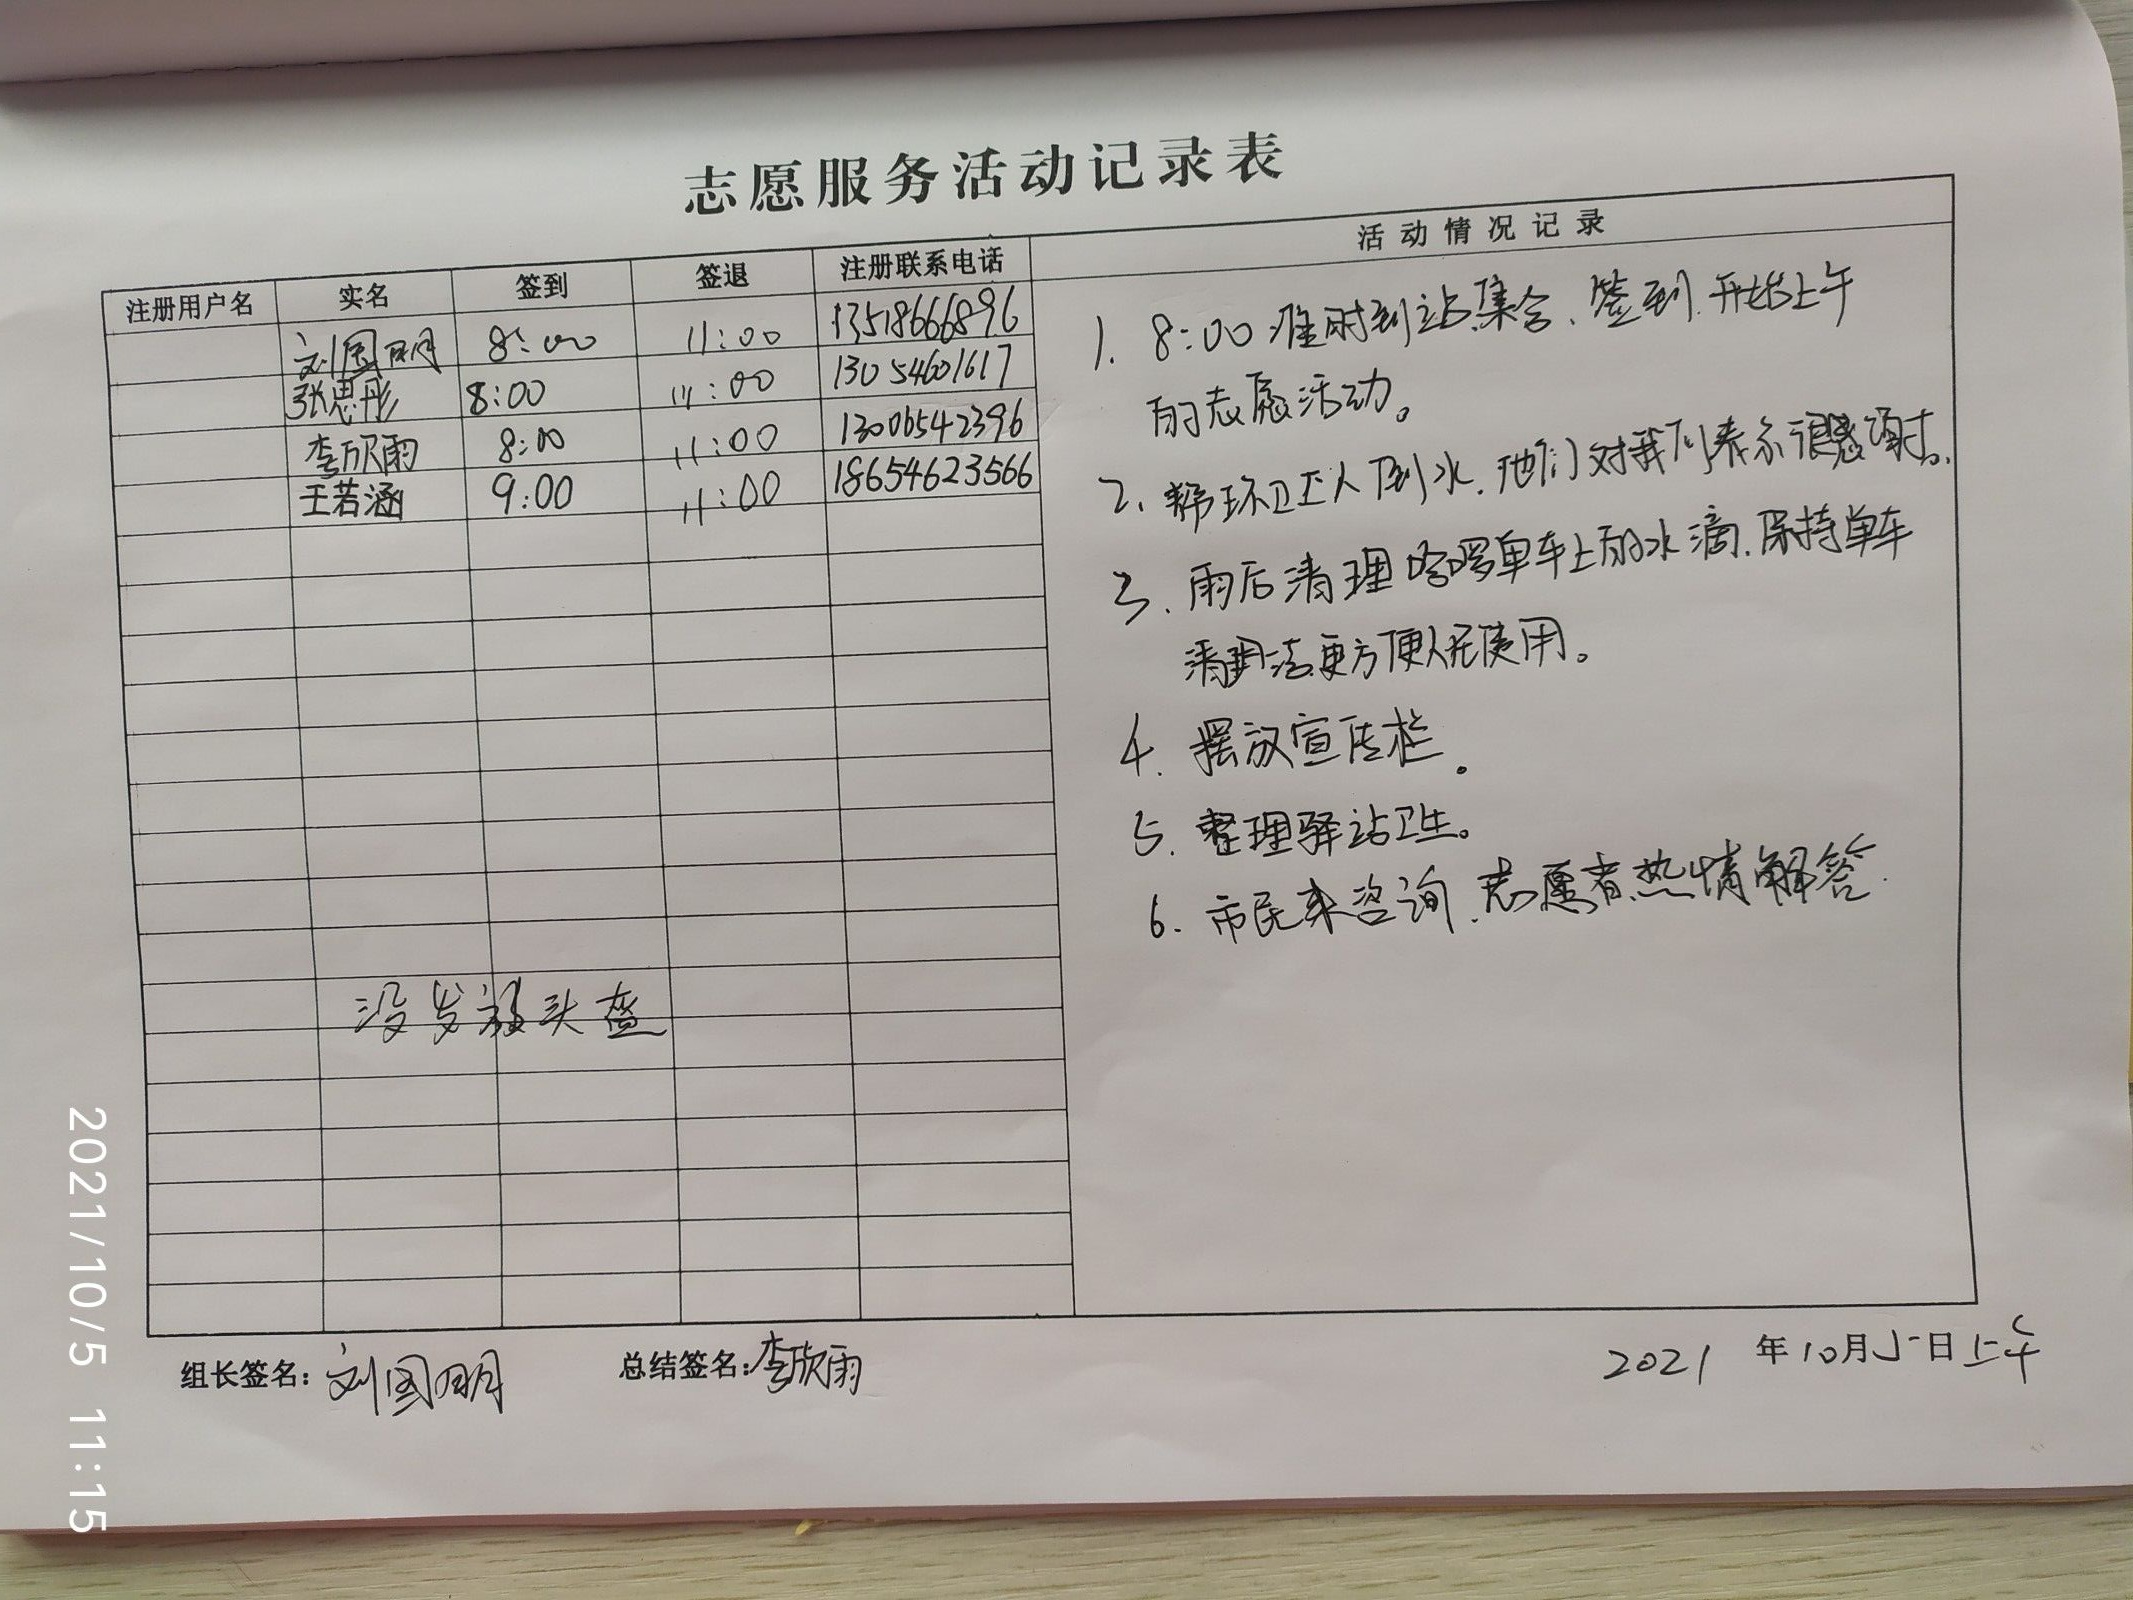 志愿服务活动记录表
注册用户名 实名 签到 签退 注册联系电话 活动情况记录
刘国明 8:00 11:00 13518666896
张思彤 8:00 11:00 13054601617
李欣雨 8:00 11:00 13006542396
王若涵 9:00 11:00 18654623566
没发放头盔
1. 8:00准时到站集合、签到.开始上午
的志愿活动。
2. 帮环卫工人倒水.他们对我们表示很感谢。
3. 雨后清理哈啰单车上的水滴.保持单车
清洁更方便人民使用。
4. 摆放宣传栏。
5. 整理驿站卫生。
6. 市民来咨询.志愿者热情解答.
组长签名：刘国明 总结签名：李欣雨 2021年10月5日上午
2021/10/5 11:15